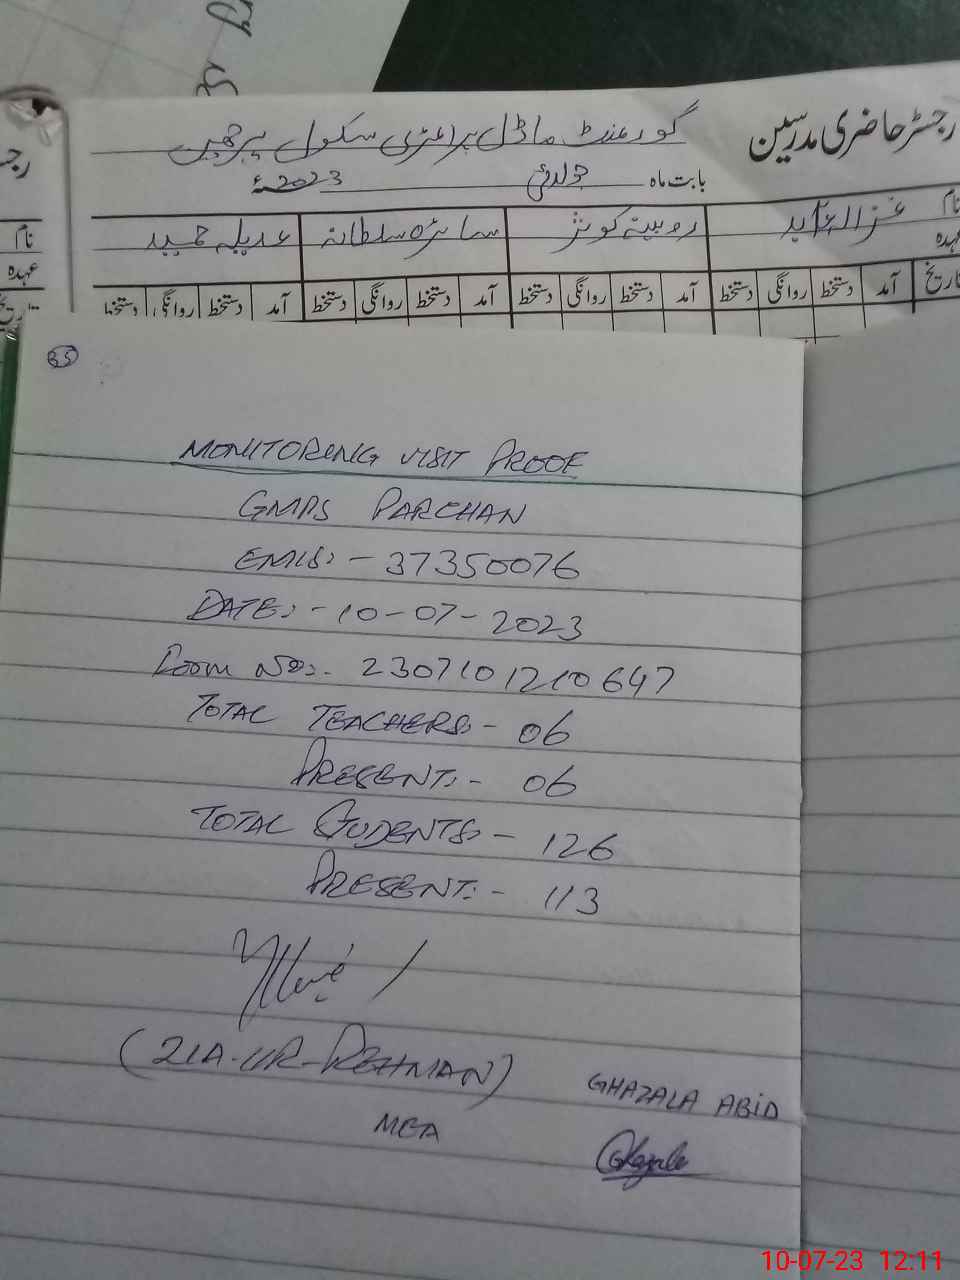 رجسٹر حاضری مدرسین
گورنمنٹ ماڈل پرائمری سکول پرچھن
بابت ماہ جولائی 2023ء
نام غزالہ عابد روبینہ کوثر سائرہ سلطانہ عدیلہ حمید
عہدہ
تاریخ آمد دستخط روانگی دستخط آمد دستخط روانگی دستخط آمد دستخط روانگی دستخط آمد دستخط روانگی دستخط
نام
عہدہ
تاریخ
35
MONITORING VISIT PROOF
GMPS PARCHAN
EMIS:- 37350076
DATE:- 10-07-2023
Room No:- 2307101210647
TOTAL TEACHERS:- 06
PRESENT:- 06
TOTAL STUDENTS:- 126
PRESENT:- 113
(ZIA-UR-REHMAN)
MEA
GHAZALA ABID
Ghazala
10-07-23 12:11